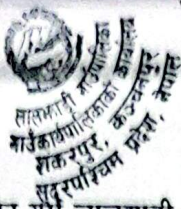 लालझाडी गाउँपालिका
गाउँकार्यपालिकाको कार्यालय
शंकरपुर, कञ्चनपुर,
सुदूरपश्चिम प्रदेश, नेपाल